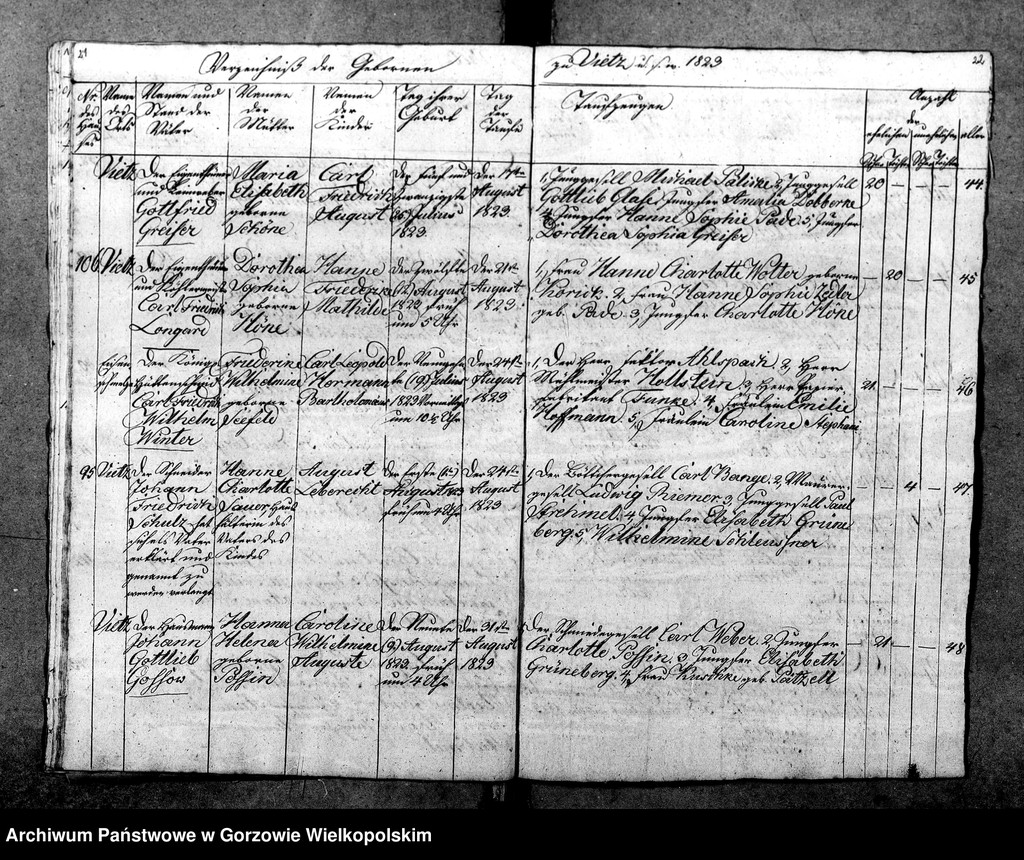 21
Verzeichniß der Gebornen
zu Vietz u.s.w. 1823
22
Nr. des Hauses
Name des Orts
Namen und Stand der Väter
Namen der Mütter
Namen der Kinder
Tag ihrer Geburt
Tag der Taufe
Taufzeugen
Anzahl
der
ehelichen
unehelichen
aller
Söhne Töchter
Söhne Töchter
Vietz
Der Eigenthümer
und
Gottfried
Greiser
Maria
Elisabeth
geborne
Schöne
Carl
Friedrich
August
Der fünf und
zwanzigste
25 Julius
1823
Den
August
1823.
1, Junggesell Michael 2, Junggesell
Gottlieb Glase, Jungfer Amalia Dobberke
4, Jungfer Hanne Sophie Pade 5, Jungfer
Dorothea Sophia Greiser
20 — — — 44
106
Vietz
Der Eigenthümer
und
Carl Friedrich
Longard
Dorothea
Sophia
geborne
Höne
Hanne
Friederike
Mathilde
Der zwölfte
(12) August
1823 früh
um 5 Uhr
Den 21st
August
1823.
1, Frau Hanne Charlotte Wolter geborne
2, Frau Hanne Sophie Zeiler
geb. Pade 3, Jungfer Charlotte Höne
— 20 — — 45
Der Königl
Carl Friedrich
Wilhelm
Winter
Friderine
Wilhelmine
geborne
Seefeld
Carl Leopold
Hermann
Bartholomäus
Der Neunzehn
te (19) Julius
1823 Vormittag
um 10 Uhr
Den 24st
August
1823
1, Der Herr Ahlspach 2, Herr
Mehlmeister Hollstein 3, Herr
Funke. 4, Fräulein Emilie
Hoffmann 5, Fräulein Caroline Stephani
21 — — — 46
95
Vietz
Der Schneider
Johann
Friedrich
Schulz hat
sich als Vater
erklärt und
genannt zu
werden verlangt
Hanne
Charlotte
Sauer, Haus
hälterin des
Vaters des
Kindes
August
Leberecht
Der Erste (1)
August 1823
früh um 4 Uhr
Den 24sten
August
1823
1, Der Böttchergesell Carl Bange. 2, Maurer-
gesell Ludwig Riemer. 3, Junggesell Paul
4, Jungfer Elisabeth Grüne
berg. 5, Wilhelmine Schleussner
— — 4 — 47
Vietz
Der Hausmann
Johann
Gottlieb
Gossow
Hanna
Helena
geborne
Possin
Caroline
Wilhelmine
Auguste
Der Neunte
(9) August
1823 früh
um 4 Uhr
Den 31st
August
1823
Der Schmiedegesell Carl Weber. 2, Jungfer
Charlotte Possin. 3, Jungfer Elisabeth
Grüneberg. 4, Frau Kuschke geb. Patzell
— 21 — — 48
Archiwum Państwowe w Gorzowie Wielkopolskim